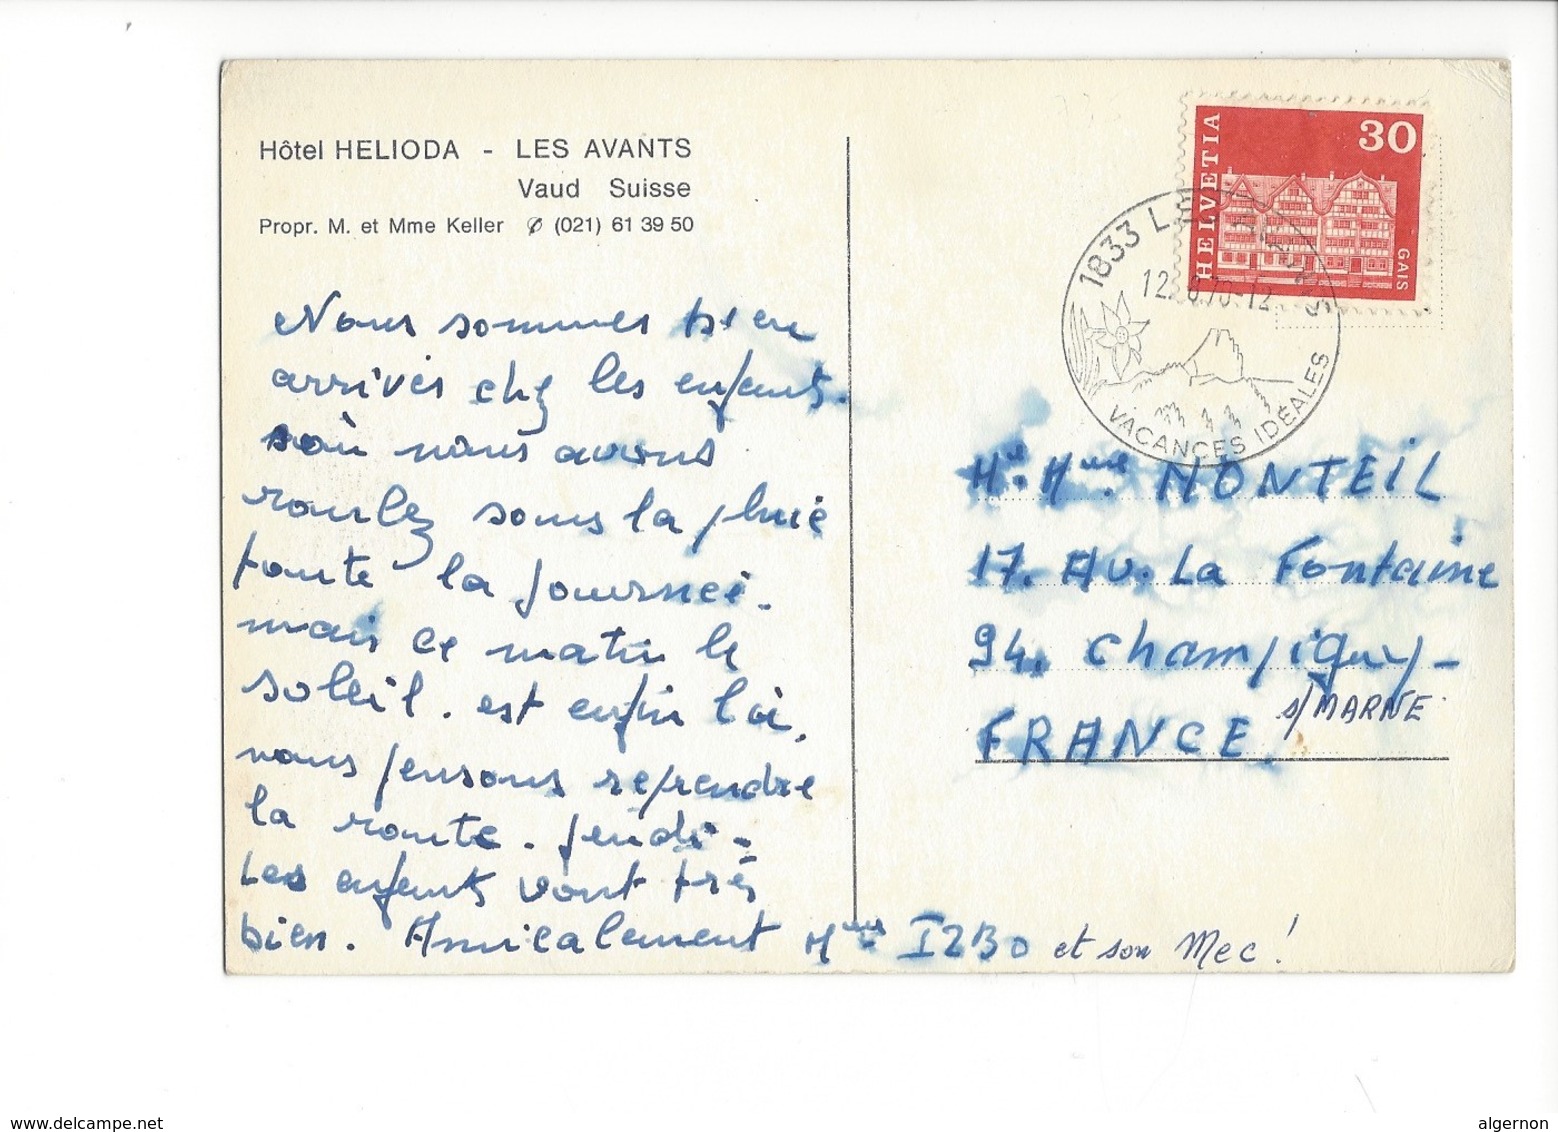 Hôtel HELIODA - LES AVANTS
Vaud Suisse
Propr. M. et Mme Keller (021) 61 39 50
Nous sommes bien
arrivés chez les enfants.
où nous avons
roulez sous la pluie
toute la journée.
mais ce matin le
soleil. est enfin là,
nous pensons reprendre
la route. jeudi -
Les enfants vont très
bien. Amicalement Mme IZBO et son Mec!
HELVETIA
30
GAIS
1833 LES AVANTS
VACANCES IDÉALES
Mr. Mme MONTEIL
17. Av. La Fontaine
94. Champigny-
s/MARNE
FRANCE
www.delcampe.net
algernon